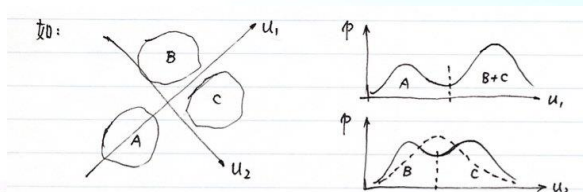 如:
B
C
A
u₁
u₂
p
A
B+C
u₁
p
B
C
u₂